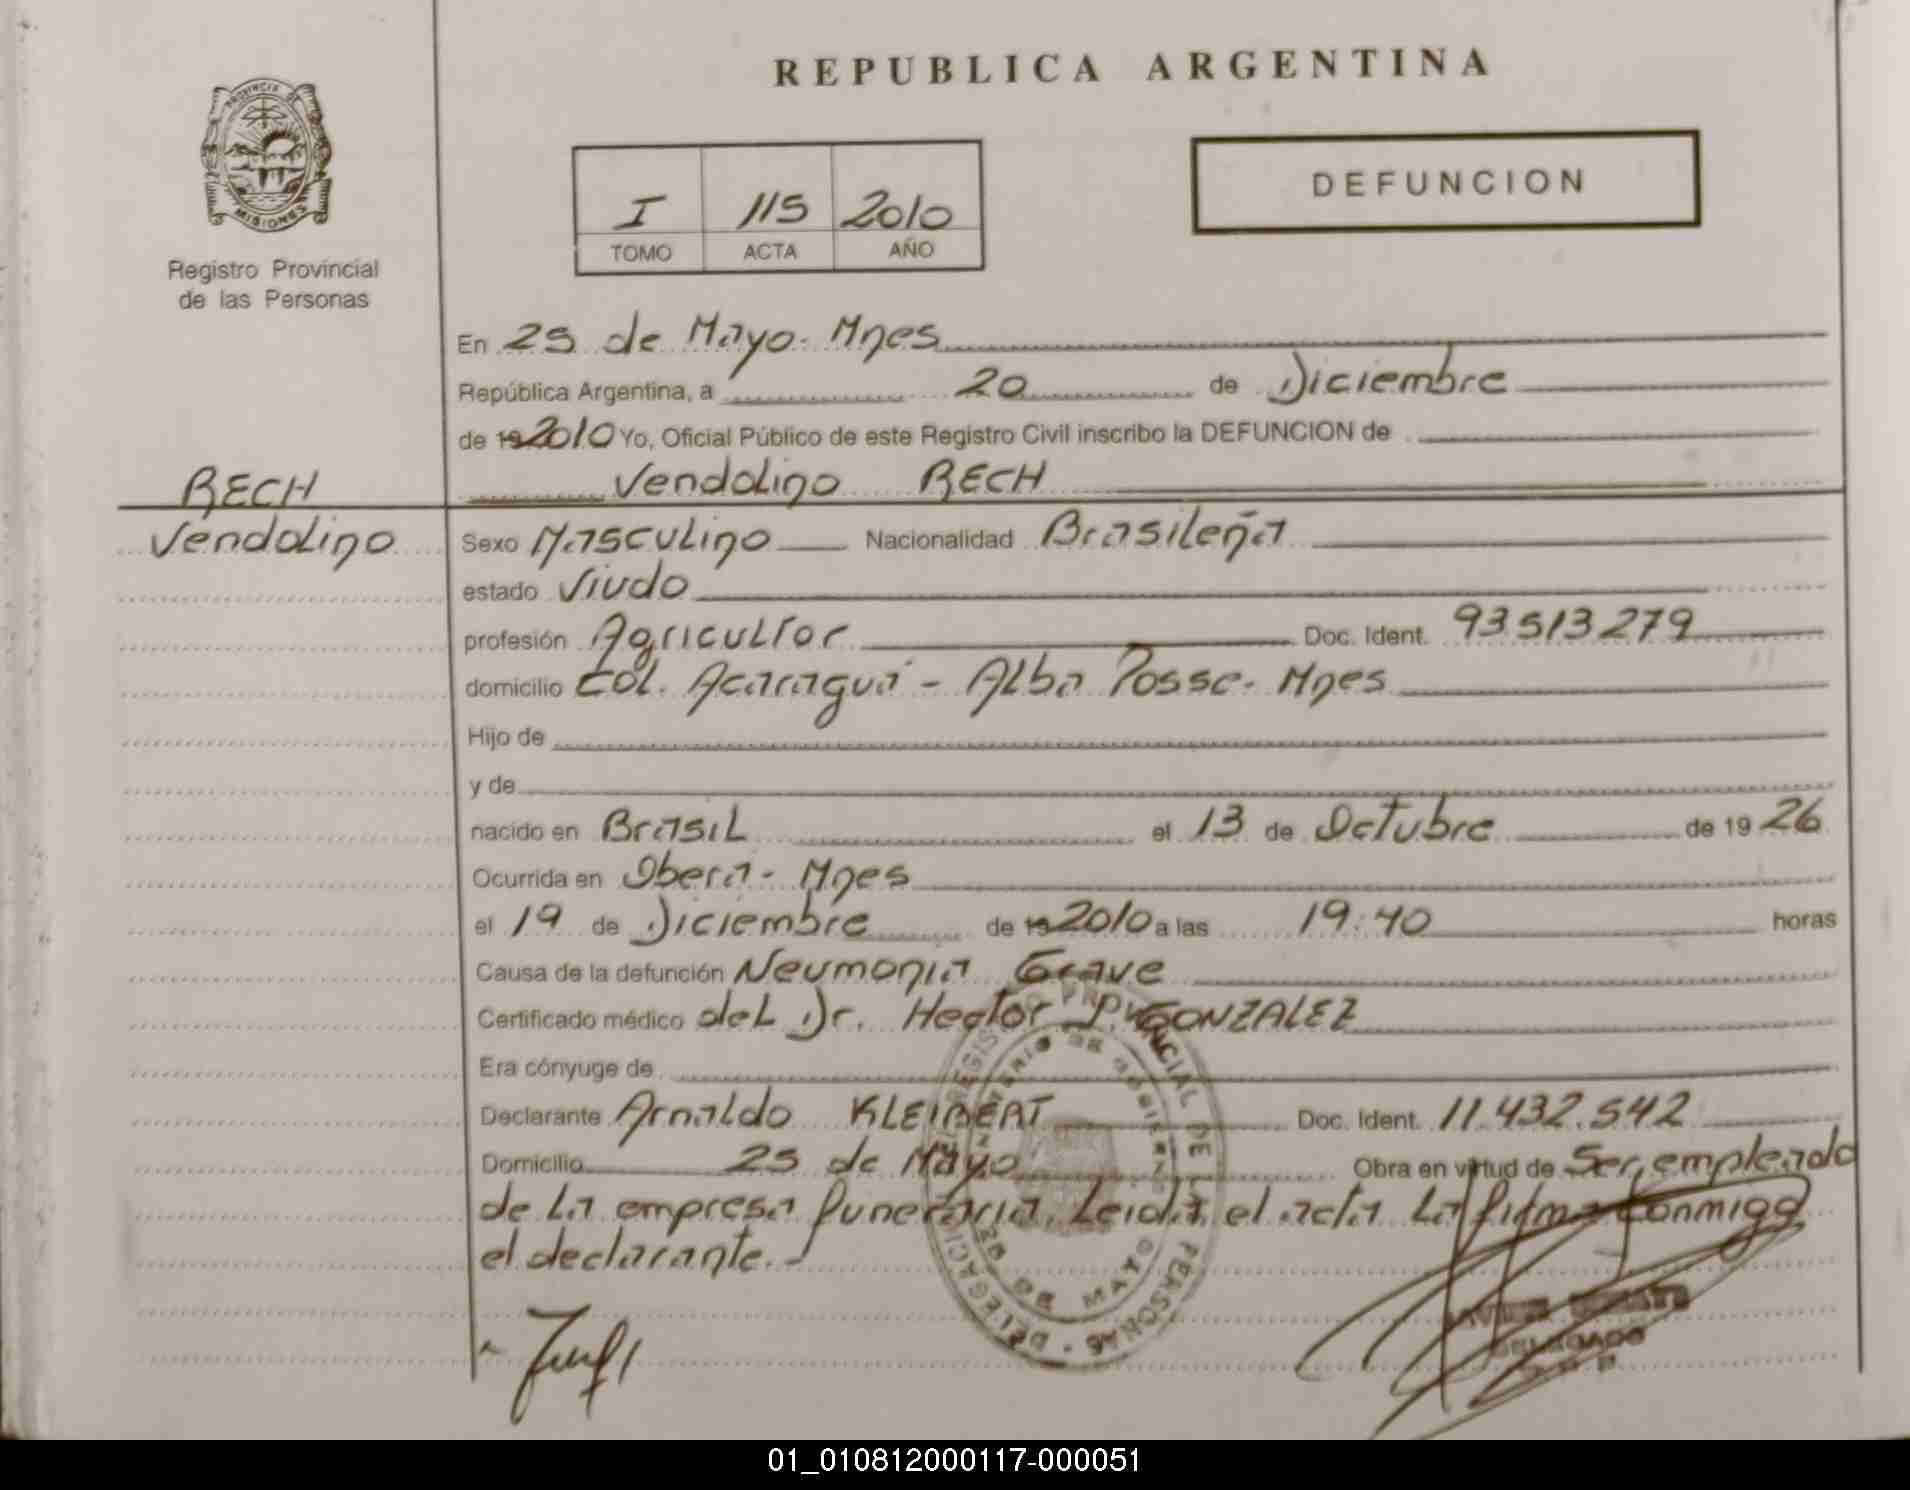 REPUBLICA ARGENTINA
PROVINCIA DE
MISIONES
Registro Provincial
de las Personas
I 115 2010
TOMO ACTA AÑO
DEFUNCION
En 25 de Mayo. Mnes
República Argentina, a 20 de Diciembre
de 19 2010 Yo, Oficial Público de este Registro Civil inscribo la DEFUNCION de
RECH
Vendolino
Vendolino RECH
Sexo Masculino Nacionalidad Brasileña
estado Viudo
profesión Agricultor Doc. Ident. 93513279
domicilio Col. Acaraguá - Alba Posse. Mnes
Hijo de
y de
nacido en Brasil el 13 de Octubre de 19 26
Ocurrida en Obera - Mnes
el 19 de Diciembre de 19 2010 a las 19:40 horas
Causa de la defunción Neumonia Grave
Certificado médico del Dr. Hector GONZALEZ
Era cónyuge de
Declarante Arnaldo KLEIBERT Doc. Ident. 11.432.542
Domicilio 25 de Mayo Obra en virtud de Ser, empleado
de la empresa funeraria. Leida el acta la firma conmigo
el declarante.-
DELEGACION REGISTRO PROVINCIAL DE LAS PERSONAS
MINISTERIO DE GOBIERNO
25 DE MAYO
DELEGADO
01_010812000117-000051